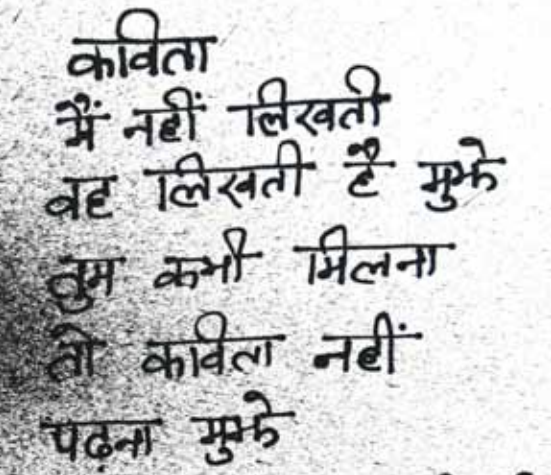 कविता
मैं नहीं लिखती
वह लिखती है मुझे
तुम कभी मिलना
तो कविता नहीं
पढ़ना मुझे